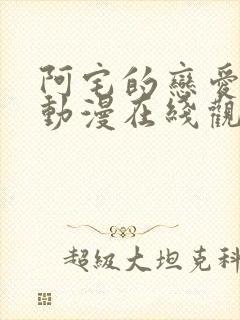 阿宅的戀愛
動漫在綫觀
超級大坦克科